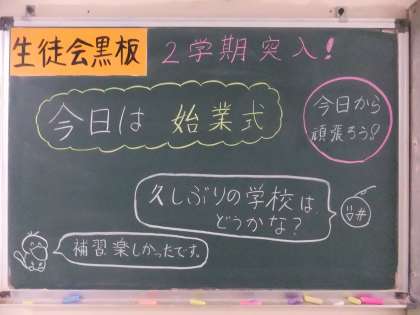 生徒会黒板
2学期突入!
今日は 始業式
今日から
頑張ろう!!
久しぶりの学校は、
どうかな?
補習、楽しかったです。